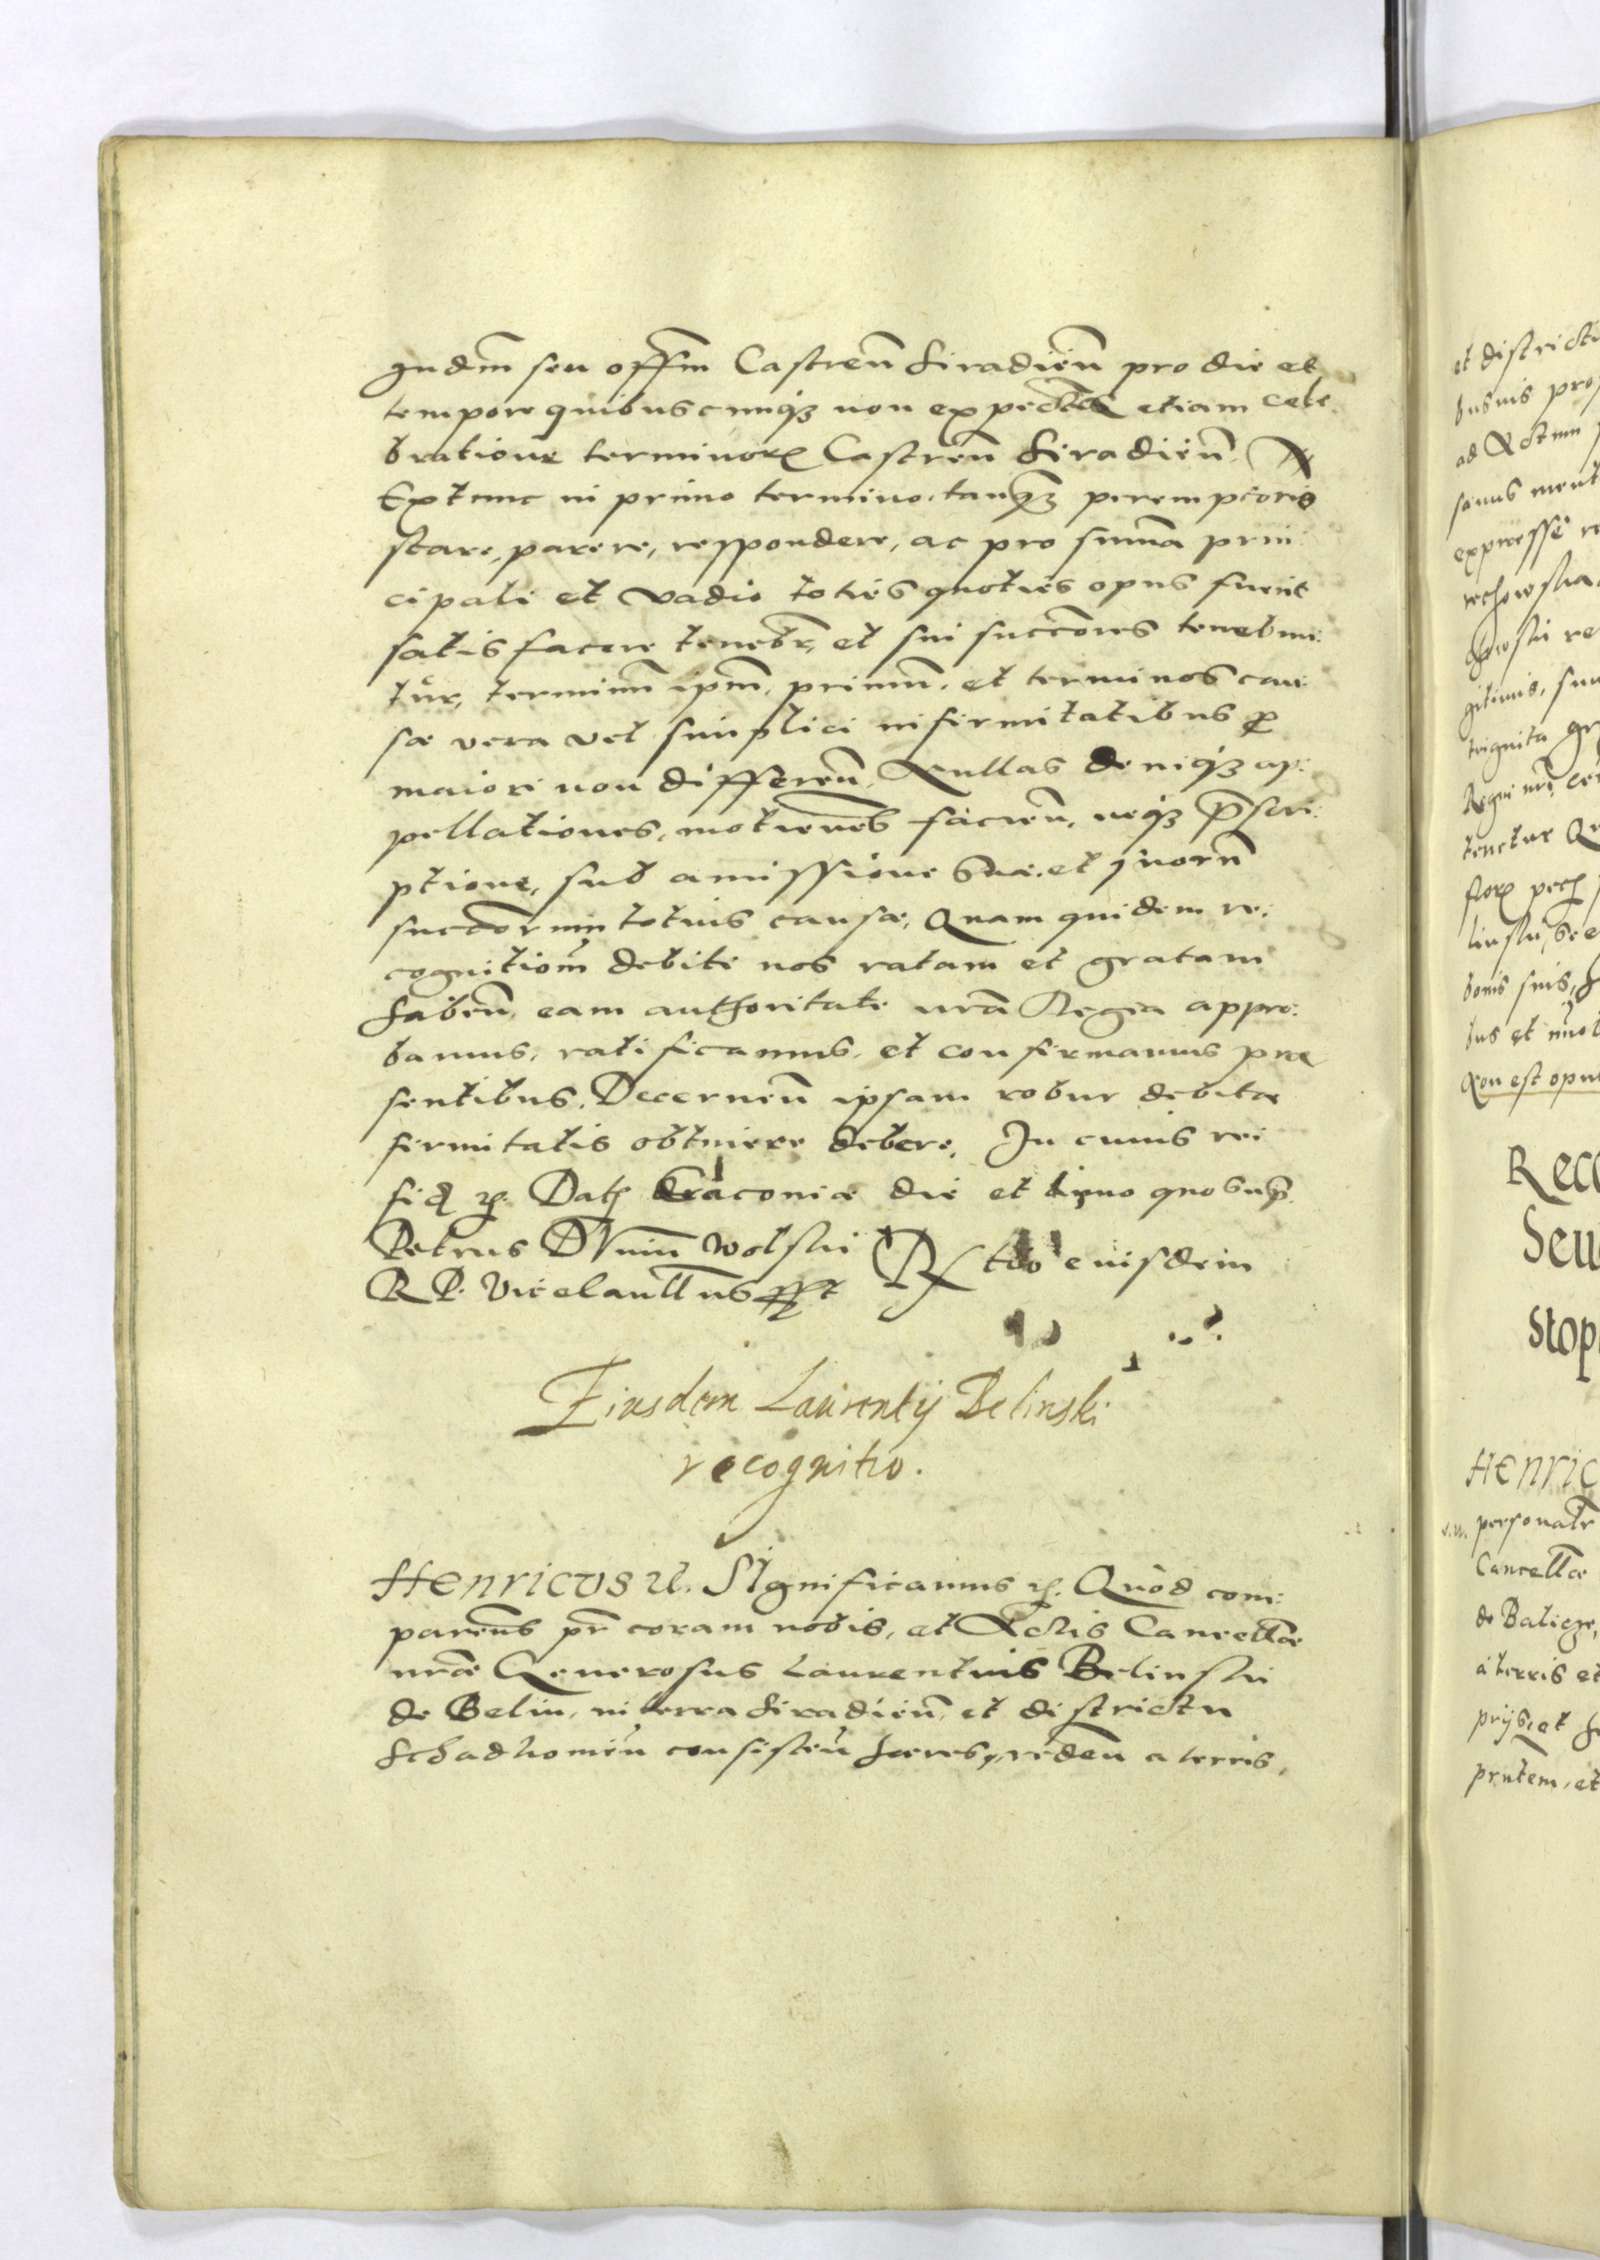 Judm seu offm Castren Siradien pro die et
tempore quibuscunq3 non expectata etiam cele:
bratione terminor Castren Siradien. A
Extunc in primo termino tanq3 peremptorio
stare, parere, respondere, ac pro summa prin:
cipali et vadio toties quoties opus fuerit
satisfacere tenebr, et sui succores tenebun:
tur, terminu ipm, primu, et terminos cau:
sæ vera vel simplici infirmitatibus p
maiori non differen. Nullas deniq3 ap:
pellationes, motiones facien, neq3 pscri:
ptione, sub amissione suæ, et suoru
succorum totius causæ, Quam quidem re:
cognitiom debite nos ratam et gratam
haben, eam authoritate nra Regia appro:
bamus, ratificamus, et confirmamus præ
sentibus. Decernen ipsam robur debitæ
firmitatis obtinere debere. In cuius rei
fid Dat Craconiæ die et anno quo sup
Petrus Wolski
R P. Vicecancellrius sst Rtio eiusdem
Eiusdem Laurentij Belinski
recognitio.
Henricus Significamus Quod com:
parens pr coram nobis, et Actis Cancellæ
nræ Generosus Laurentius Belinski
de Belin, in terra Siradien, et districtu
Schadkomien consisten hæres, reden a terris,
et districtu
busuis prop
ad Actum
sanus ment
expresse re
gitimis, sum
triginta gr
Regni nri, cen
tenetur
linski, se e
bonis suis,
bus et
Non est opus
Reco
Seu
Stop
Henric
personatr
Cancellæ
de
a terris et
prijs, et h
pntem, et